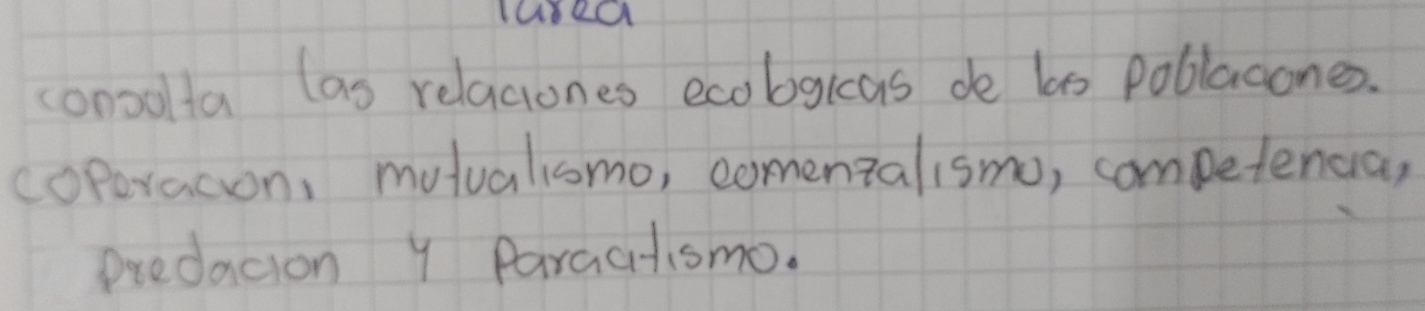 Tarea
consolta las relaciones ecologicas de las Poblacones.
coperacion, mutualismo, comenzalismo, competencia,
Predacion y Paracitismo.